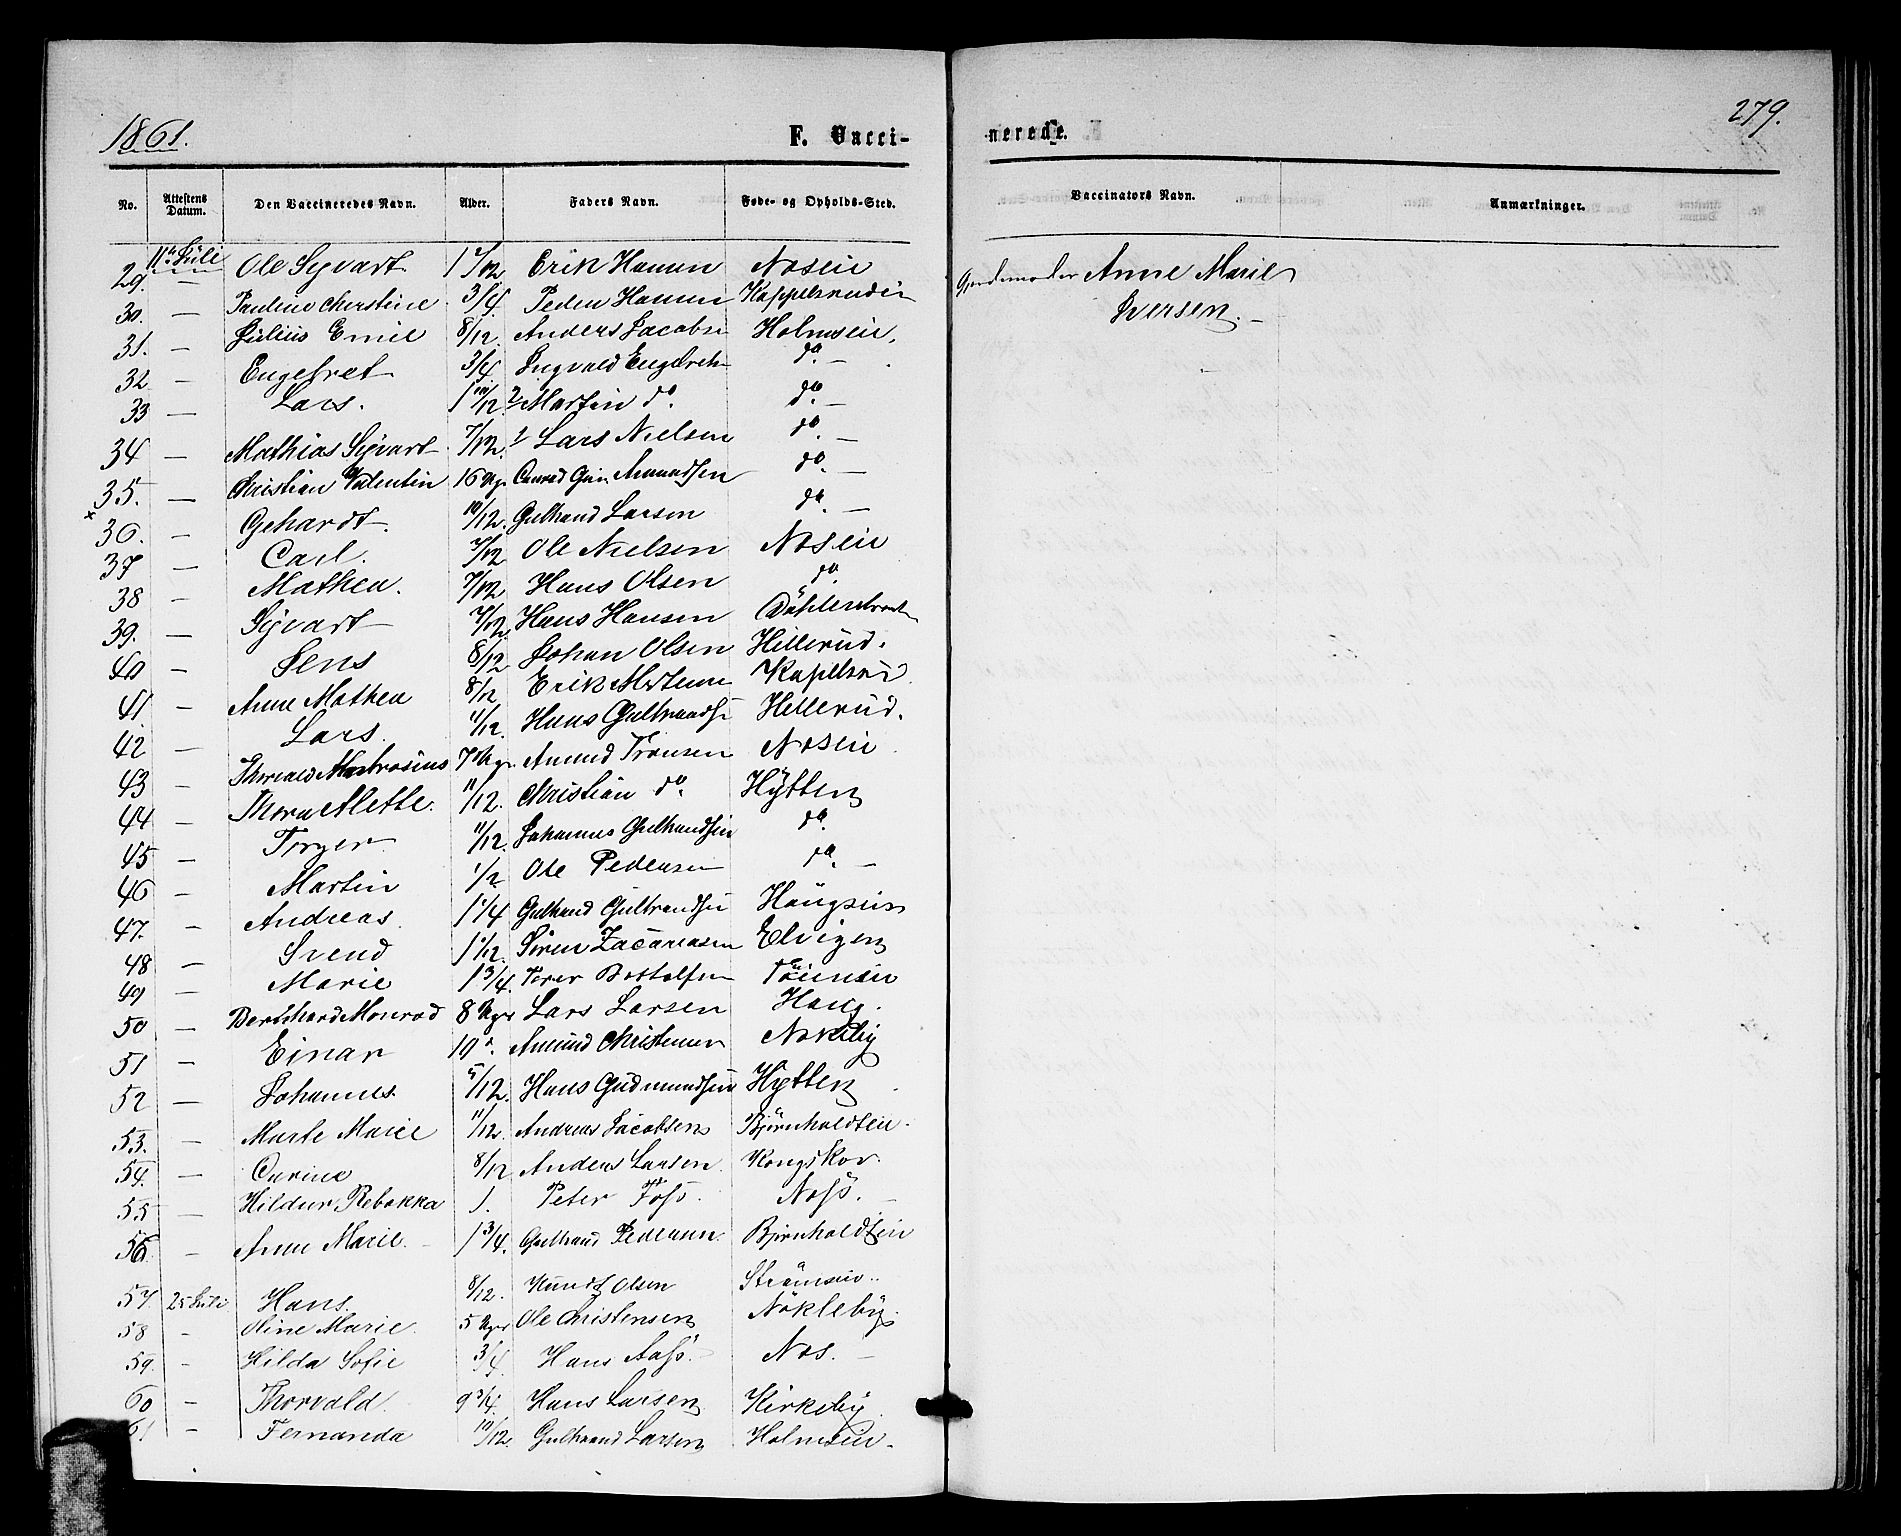 1861.
F. Vacci-
nerede.
279.
No. Attestens Datum. Den Vaccineredes Navn. Alder. Faders Navn. Føde- og Opholds-Sted. Vaccinators Navn. Anmærkninger.
29. 11te Juli Ole Syvart 1 Erik Hansen Noseie Gjordemoder Anne Marie
Iversen. —
30. — Pauline Cherstine 3/4. Peder Hansen
31. — Julius Emil 8/12. Anders Jacobs Holmseie.
32 — Engebret 3/4 Ingvald Engebreth do. —
33 — Lars. 1 10/12. Martin do. do. —
34 — Mathias Syvart 7/12. Lars Nielsen do. —
35. — Christian Valentin 16 Uger Conrad Amundsen do. —
x 36. — Gehardt. 10/12. Gulbrand Larsen do. —
37 — Carl. 7/12 Ole Nielsen Noseie
38 — Mathea. 7/12 Hans Olsen do.
39. — Syvart 7/12. Hans Hansen
40 — Jens 8/12 Johan Olsen Hillerud.
41. — Anne Mathea 8/12 Erik Kapelsrud.
42 — Lars. 11/12. Hans Gulbrands Hillerud.
43 — Thorvald 7 Uger. Amund Transen Noseie
44 — Thora Alette. 11/12. Christian do. Hÿtten
45 — Torger 11/12. Johannes Gulbrandsen do.
46 — Martin 1/2 Ole Pedersen do. —
47. — Andreas. 1 1/4 Gulbrand Gulbrandsen
48 — Svend 1 1/12. Søren Zacariasen Elvigen
49 — Marie 1 3/4. Torer
50 — Bernhard Monrad 8 Uger Lars Larsen Haug.
51 — Einar 10 ". Amund Christensen
52 — Johannes. 5/12. Hans Gudmundsen Hytten
53. — Marte Marie 11/12. Andreas Jacobsen Bjørnholdteie.
54. — Carine 8/12 Anders Larsen. Kongskov.
55 — Hildur Rebekka 1. Peter Foss. —
56. — Anne Marie. 1 3/4. Gulbrand Pedersen. Bjørnholdteie
57. 25 Juli Hans. 8/12. Knudt Olsen Strømseie..
58 - Oline Marie. 5 Uger Ole Christensen Nökleby.
59. - Hilda Sofie 3/4. Hans Nos. —
60 - Thorvald. 9 3/4. Hans Larsen Kirkeby.
61 - Fernanda 10/12. Gulbrand Larsen Holmseie.